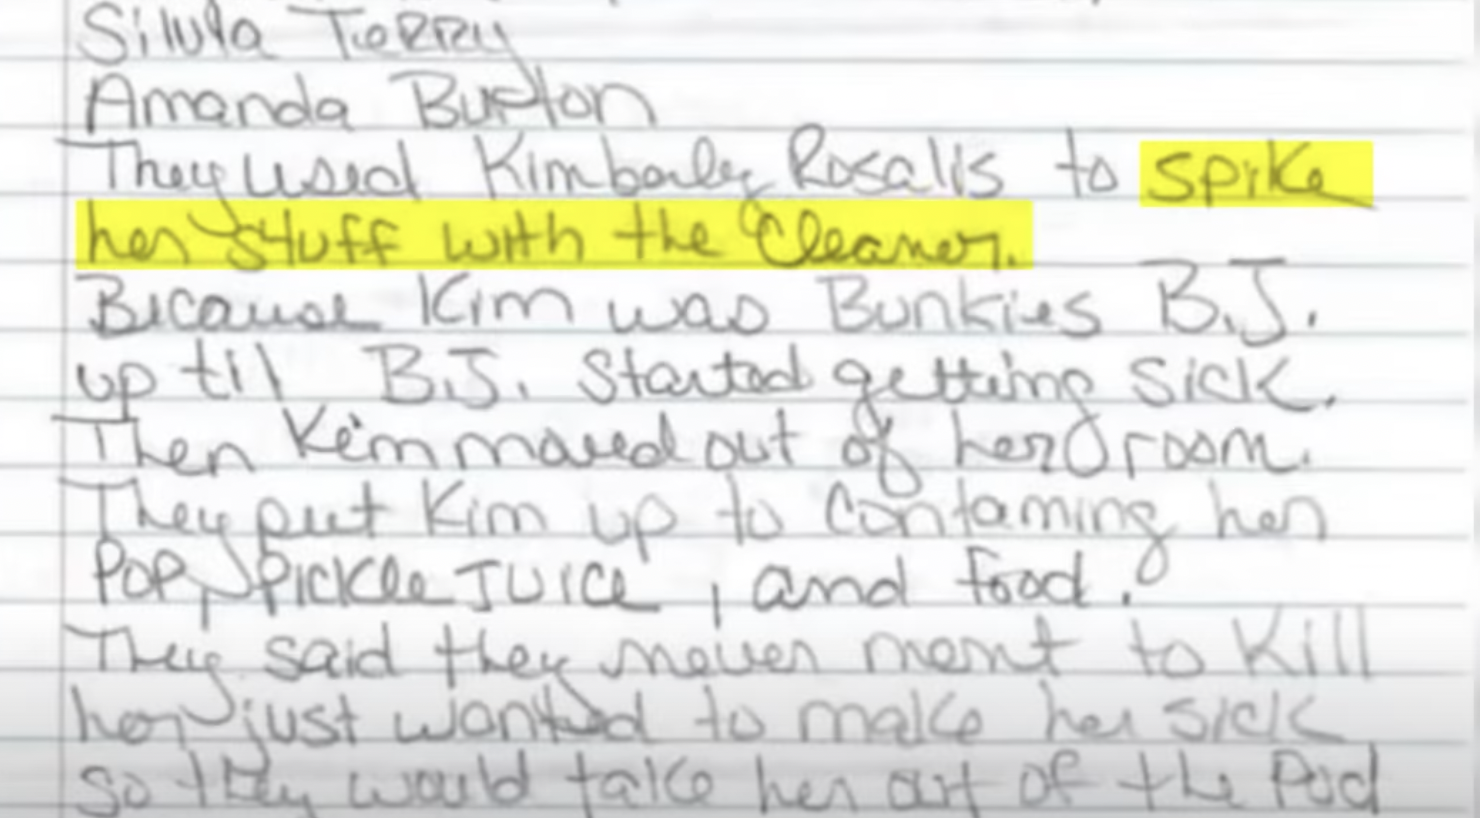 Silvia Terry
Amanda Burton
They used Kimberly Rosalis to spike
her stuff with the Cleaner.
Because Kim was Bunkies B.J.
up til B.J. Started getting sick.
Then Kim moved out of her room.
They put Kim up to contaming her
Pop, Pickle Juice, and food.
They said they never ment to Kill
her just wanted to make her sick
so they would take her out of the Pod